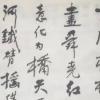 盡舜堯紅
意化为橋天
河鐵臂搖